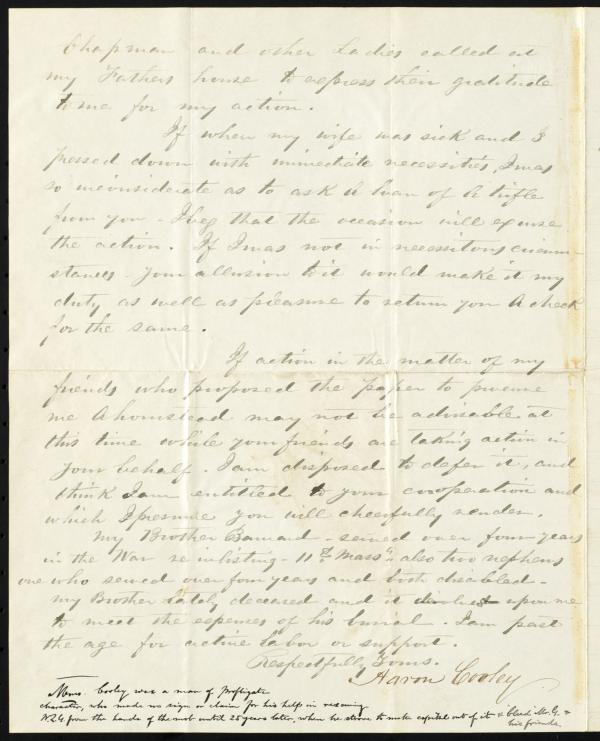 Chapman and other Ladies called at
my Fathers house to express their gratitude
to me for my action.
If when my wife was sick and I
pressed down with immediate necessities, I was
so inconsiderate as to ask A loan of A trifle
from you - I beg that the occasion will excuse
the action. If I was not in necessitous circum-
stances - your allusion to it would make it my
duty as well as pleasure to return you A check
for the same.
If action in the matter of my
friends who proposed the paper to procure
me A homstead may not be advisable at
this time while your friends are taking action in
your behalf. I am disposed to defer it, and
think I am entitled to your cooperation and
which I presume you will cheerfully render.
My Brother Barnard - served over four years
in the War re inlisting - 11th Mass also two nephews
one who served over four years and both disabled -
my Brother lately deceased and it upon me
to meet the expenses of his burial. I am past
the age for active labor or support.
Respectfully Yours.
Aaron Cooley
Mem. Cooley was a man of profligate
character, who made no sign or claim for his help in rescuing
W.L.G. from the hands of the mob until 25 years later, when he strove to make capital out of it & bleed Mr. G. &
his friends.